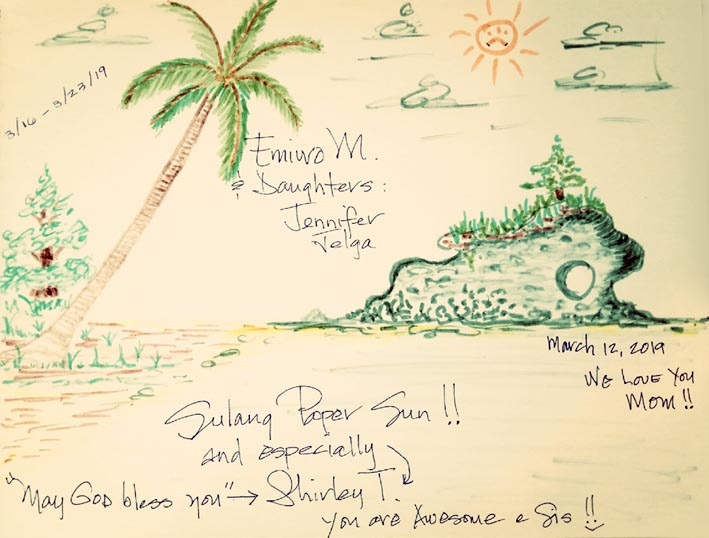 3/16 - 3/23/19
Emiwo M.
& Daughters:
Jennifer
Telga
March 12, 2019
We Love You
Mom!!
Sulang Paper Sun!!
and especially
"May God bless you" → Shirley T.
you are Awesome e Sis!!